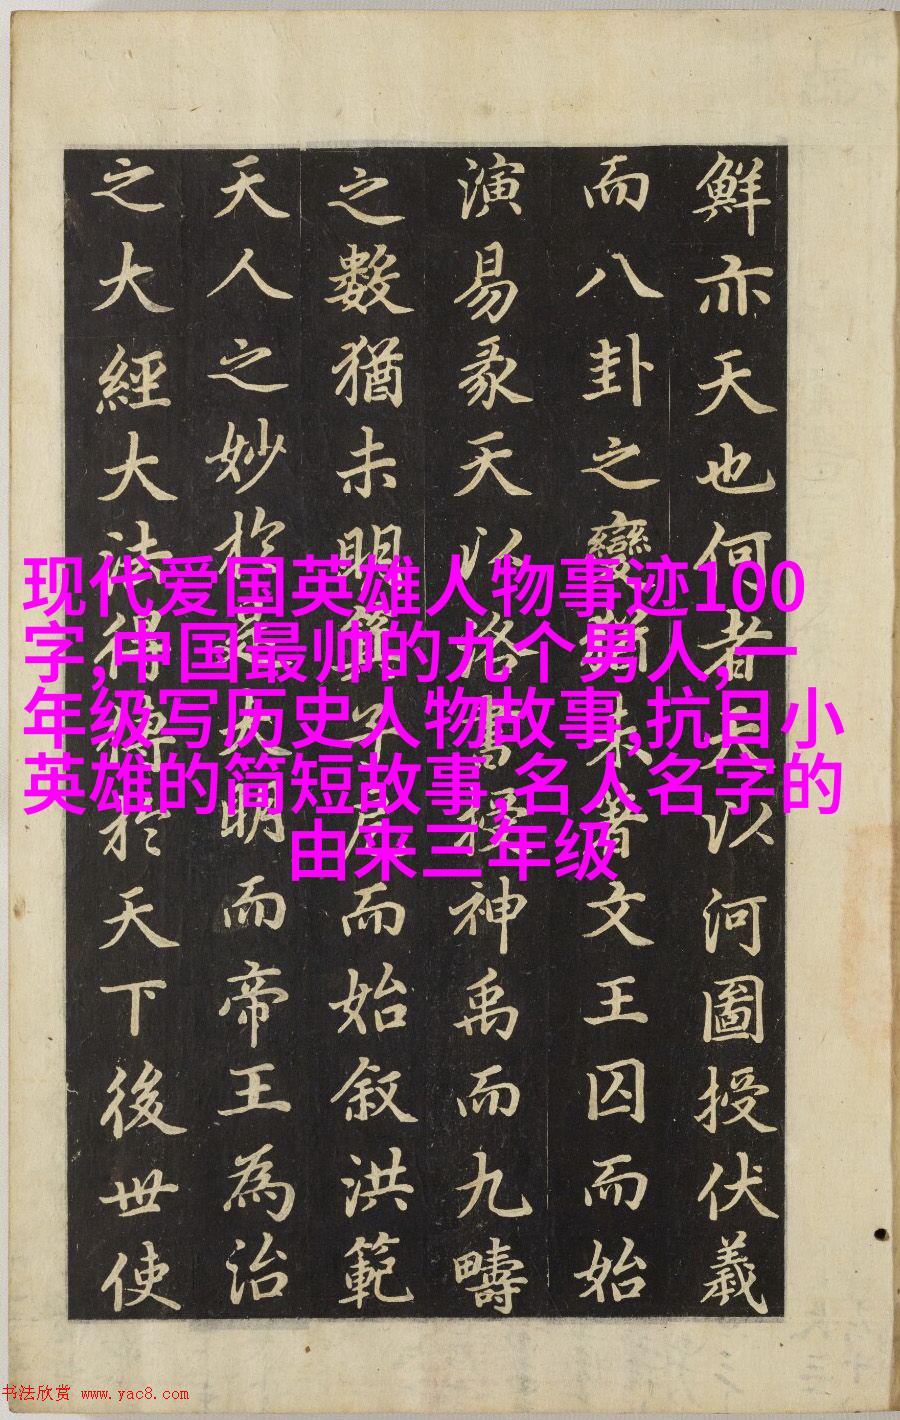 鮮亦天也何者天以河圖授伏羲
而八卦之變猶未著文王囚而始
演易彖天以洛書授神禹而九疇
之數猶未明箕子而始叙洪範
天人之妙於是大明而帝王為治
之大經大法得傳於天下後世使
现代爱国英雄人物事迹100
字,中国最帅的九个男人,一
年级写历史人物故事,抗日小
英雄的简短故事,名人名字的
由来三年级
书法欣赏 www.yac8.com